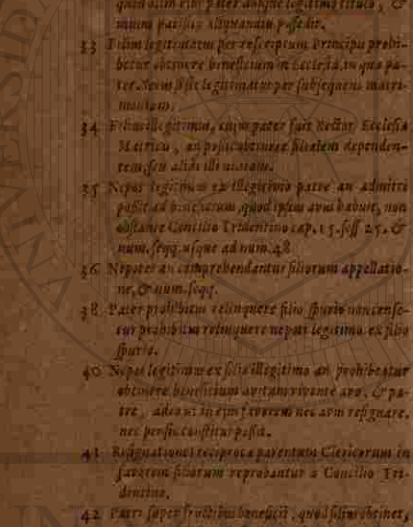 quod olim eius pater absque legitimo titulo, &
33 Filius legitimatus per rescriptum Principis prohi-
betur obtinere beneficium in Ecclesia, in qua pa-
ter. Secus si sit legitimatus per subsequens matri-
monium.
34 Filius illegitimus, cuius pater fuit Rector Ecclesiæ
Matricis, an possit obtinere filialem dependen-
tem, seu alias illi unitam.
35 Nepos legitimus ex illegitimo patre an admitti
possit ad beneficium, quod ipsius avus habuit, non
obstante Concilio Tridentino cap. 15. sess. 25. &
num. seqq. usque ad num. 48
36 Nepotes an comprehendantur filiorum appellatio-
ne, & num. seqq.
38 Pater prohibitus relinquere filio spurio non cense-
tur prohibitus relinquere nepoti legitimo ex filio
spurio.
40 Nepos legitimus ex filio illegitimo an prohibeatur
obtinere beneficium avitum vivente avo, & pa-
tre, adeo ut in ejus favorem nec avus resignare,
nec pensio constitui possit.
41 Resignationes reciprocæ parentum Clericorum in
favorem filiorum reprobantur a Concilio Tri-
dentino.
42 Patri super fructibus beneficii, quod filius obtinet,